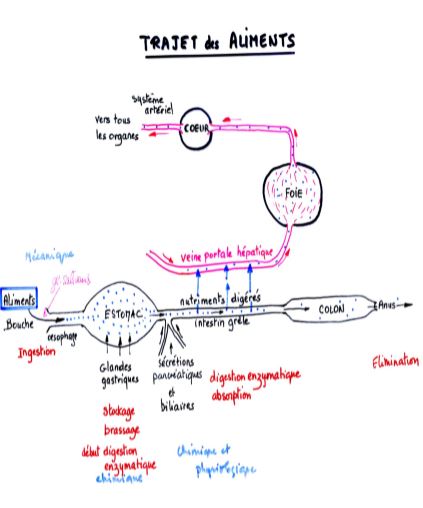 TRAJET des ALIMENTS
système
artériel
vers tous
les organes
COEUR
FOIE
veine portale hépatique
Mécanique
gl. salivaires
Aliments
Bouche
oesophage
Ingestion
ESTOMAC
nutriments digérés
intestin grêle
COLON
Anus
Elimination
Glandes
gastriques
Sécrétions
pancréatiques
et
biliaires
digestion enzymatique
absorption
Stockage
brassage
début digestion
enzymatique
chimique
Chimique et
physiologique